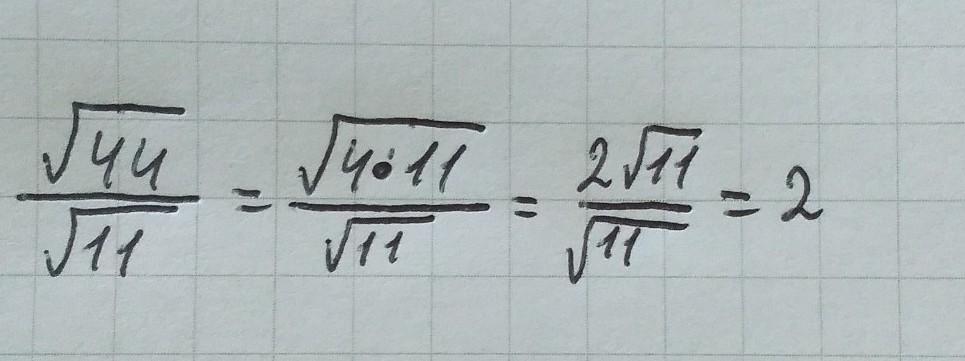 √44/√11 = √4·11/√11 = 2√11/√11 = 2